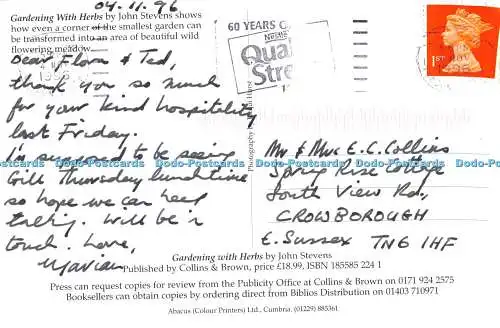 04.11.96
Gardening With Herbs by John Stevens shows
how even a corner of the smallest garden can
be transformed into an area of beautiful wild
flowering meadow.
60 YEARS
Nestlé
Qua
Stre
1ST
Dear Flora & Ted,
thank you so much
for your kind hospitality
last Friday.
I'm supposed to be seeing
Gill Thursday lunchtime
so hope we can keep
talking. Will be in
touch. Love,
Marian
Photography by
Mr & Mrs E.C. Collins
Spring Rise Cottage
South View Rd.,
CROWBOROUGH
E. SUSSEX TN6 1HF
Dodo-Postcards Dodo-Postcards Dodo-Postcards Dodo-Postcards Dodo-Postcards
Gardening with Herbs by John Stevens
Published by Collins & Brown, price £18.99, ISBN 185585 224 1
Press can request copies for review from the Publicity Office at Collins & Brown on 0171 924 2575
Booksellers can obtain copies by ordering direct from Biblios Distribution on 01403 710971
Abacus (Colour Printers) Ltd., Cumbria. (01229) 885361